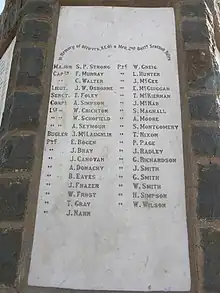 In memory of officers, N.C.O's & Men, 2nd Batt Scottish Rifles
Major S. P. Strong Pte W. Greig
Captn F. Murray " L. Hunter
" C. Walter " J. McGee
Lieut. J. W. Osborne " E. McGuigan
Sergt. T. Foley " T. McKiernan
Corpl A. Simpson " J. McNab
L/Cpl W. Crichton " S. Magnall
" W. Schofield " A. Moore
" A. Seymour " S. Montgomery
Bugler J. McLaughlin " T. Nixon
Pte E. Bogen " P. Page
" J. Bray " J. Radley
" J. Canovan " G. Richardson
" A. Donachy " J. Smith
" B. Eaves " G. Smith
" J. Frazer " W. Smith
" W. Frost " H. Simpson
" T. Gray " W. Wilson
" J. Hann